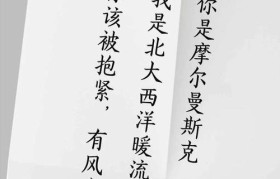 你是摩尔曼斯克
我是北大西洋暖流
该被抱紧，有风